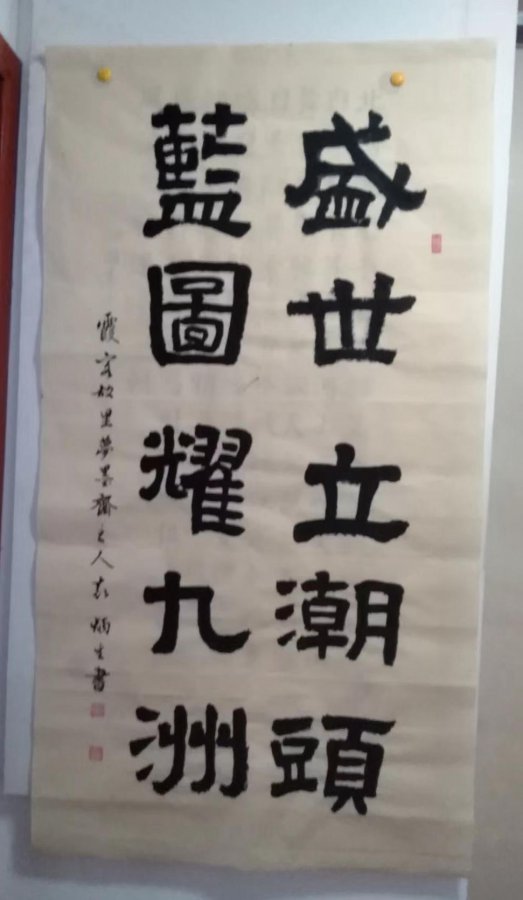 盛世立潮頭
藍圖耀九洲
霞客故里夢墨齋主人袁炳生書